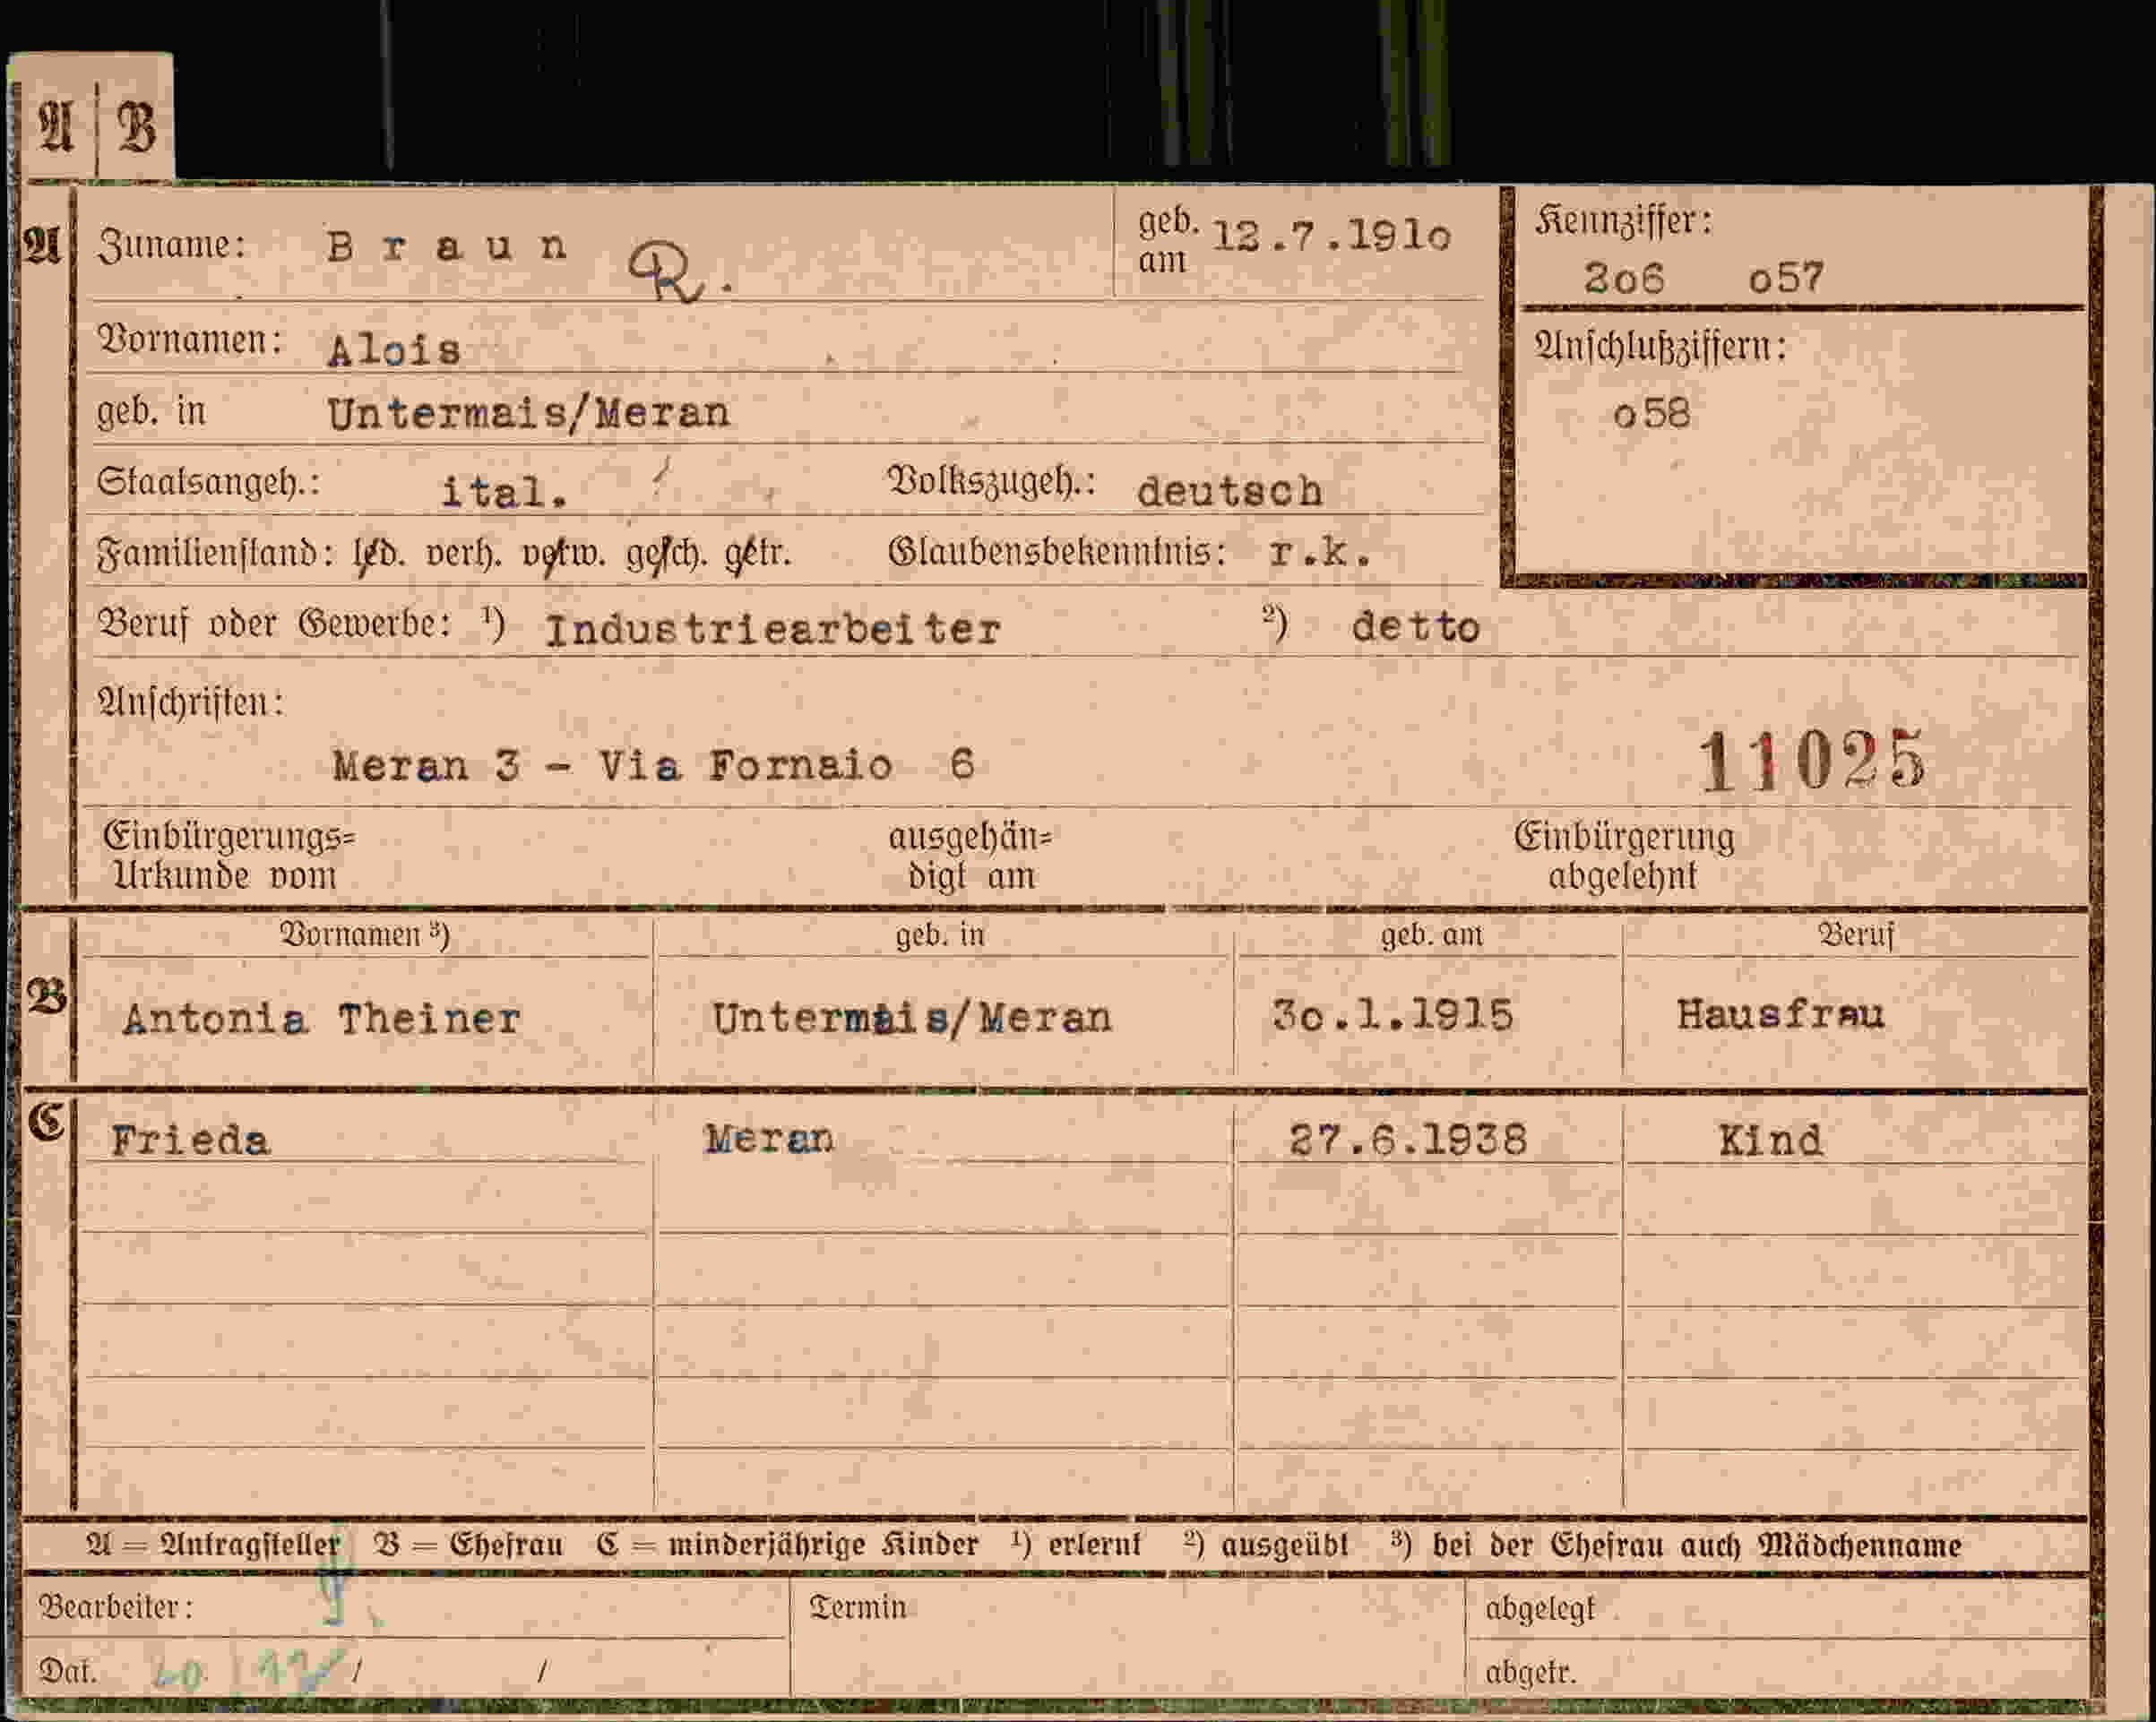 A B
A Zuname: Braun R. geb. am 12.7.191o Kennziffer:
2o6 o57
Vornamen: Alois Anschlußziffern:
geb. in Untermais/Meran o58
Staatsangeh.: ital. Volkszugeh.: deutsch
Familienstand: led. verh. verw. gesch. getr. Glaubensbekenntnis: r.k.
Beruf oder Gewerbe: ¹) Industriearbeiter ²) detto
Anschriften:
Meran 3 - Via Fornaio 6 11025
Einbürgerungs= ausgehän= Einbürgerung
Urkunde vom digt am abgelehnt
Vornamen ³) geb. in geb. am Beruf
B Antonia Theiner Untermais/Meran 3o.1.1915 Hausfrau
C Frieda Meran 27.6.1938 Kind
A = Antragsteller B = Ehefrau C = minderjährige Kinder ¹) erlernt ²) ausgeübt ³) bei der Ehefrau auch Mädchenname
Bearbeiter: Termin abgelegt
Dat. / / abgetr.